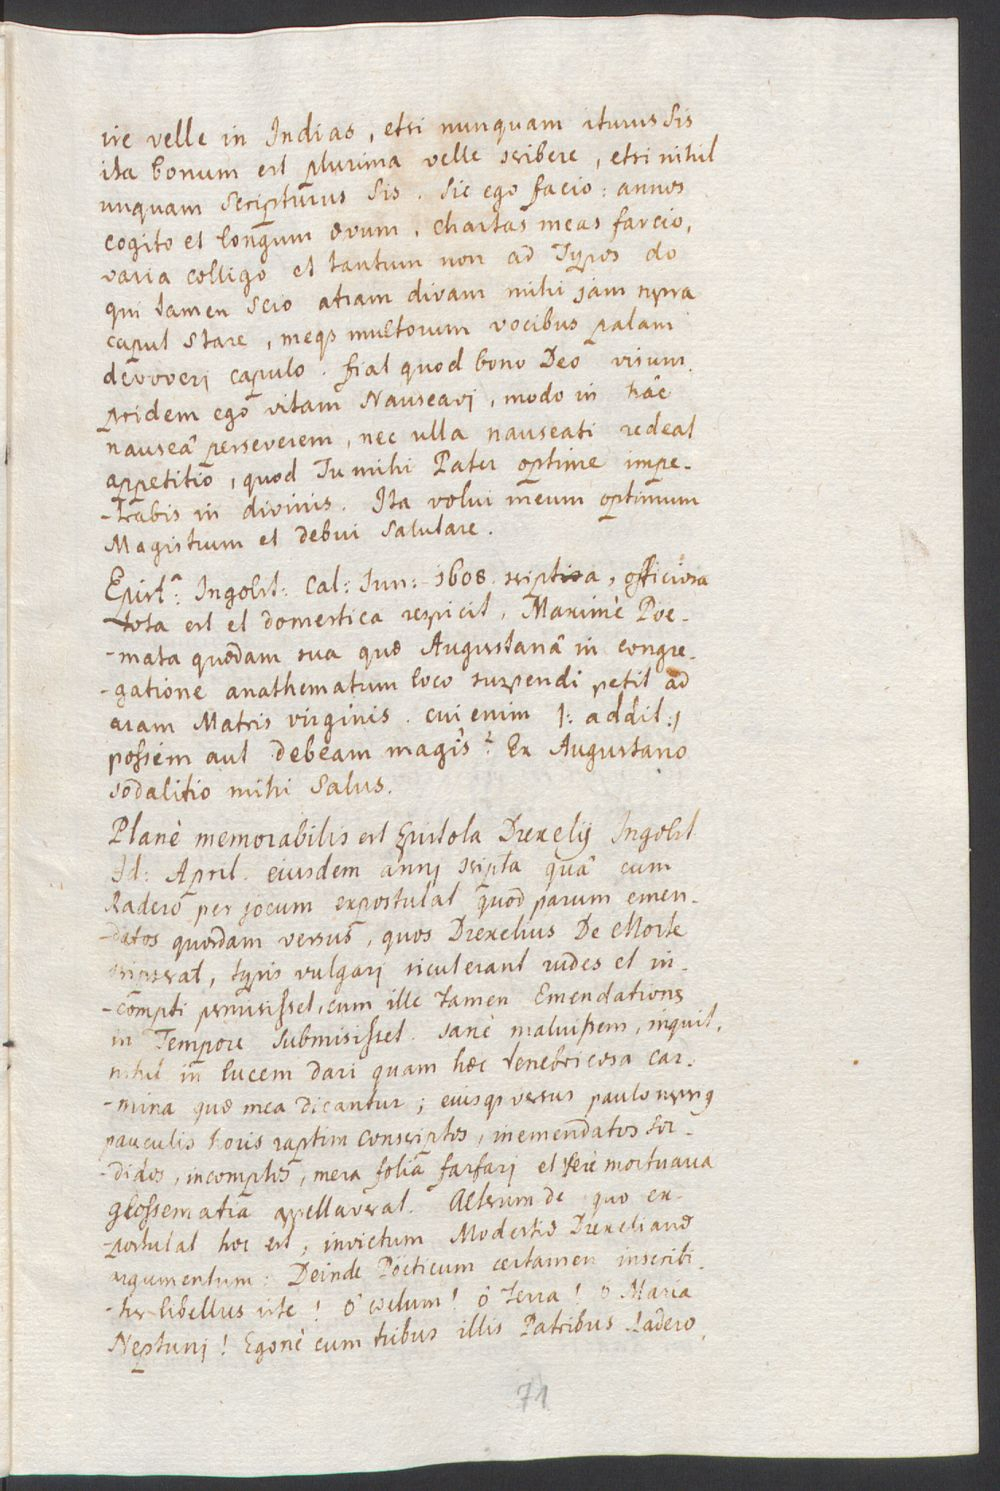 ire velle in Indias, etsi nunquam iturus Sis
ita bonum est plurima velle scribere, etsi nihil
unquam Scripturus Sis. Sic ego facio: annos
cogito et longum ævum, chartas meas farcio,
varia colligo et tantum non ad Typos do
qui tamen Scio atram divam mihi jam supra
caput Stare, meqȝ multorum vocibus palam
devoverj capulo. fiat quod bono Deo visum.
pridem ego vitam Nauseavj, modo in hâc
nauseâ perseverem, nec ulla nauseati redeat
appetitio, quod Tu mihi Pater optime impe-
-trabis in divinis. Ita volui meum optimum
Magistrum et debui Salutare.
Epistª: Ingolst: Cal: Jun: 1608. scripta, officiosa
tota est et domestica respicit, Maximè Poe-
-mata quædam sua quæ Augustanâ in congre-
-gatione anathematum loco suspendi petit ad
aram Matris virginis. cui enim |: addit :|
possem aut debeam magis? Ex Augustano
sodalitio mihi Salus.
Planè memorabilis est Epistola Drexelij Ingolst
Id: April. eiusdem annj scripta quâ cum
Raderò per jocum expostulat quod parum emen-
-datos quosdam versus, quos Drexelius De Morte
scripserat, typis vulgarj sicut erant rudes et in-
-compti permisisset, cum ille tamen Emendationes
in Tempore Submisisset. sanè maluissem, inquit,
nihil in lucem dari quam hæc tenebricosa car-
-mina quæ mea dicantur; eiusqȝ versus paulo
pauculis horis raptim conscriptos, inemendatos sor-
-didos, incomptos, mera folia farfarj et verè mortuaria
glossematia appellaverat. Alterum de quo ex-
-postulat hoc est, invictum Modestiæ Drexelianæ
argumentum: Deinde Pöeticum certamen inscribi-
-tur libellus iste! ô coelum! ô Terra! ô Maria
Neptunj! Egonè cum tribus illis Patribus Radero,
71